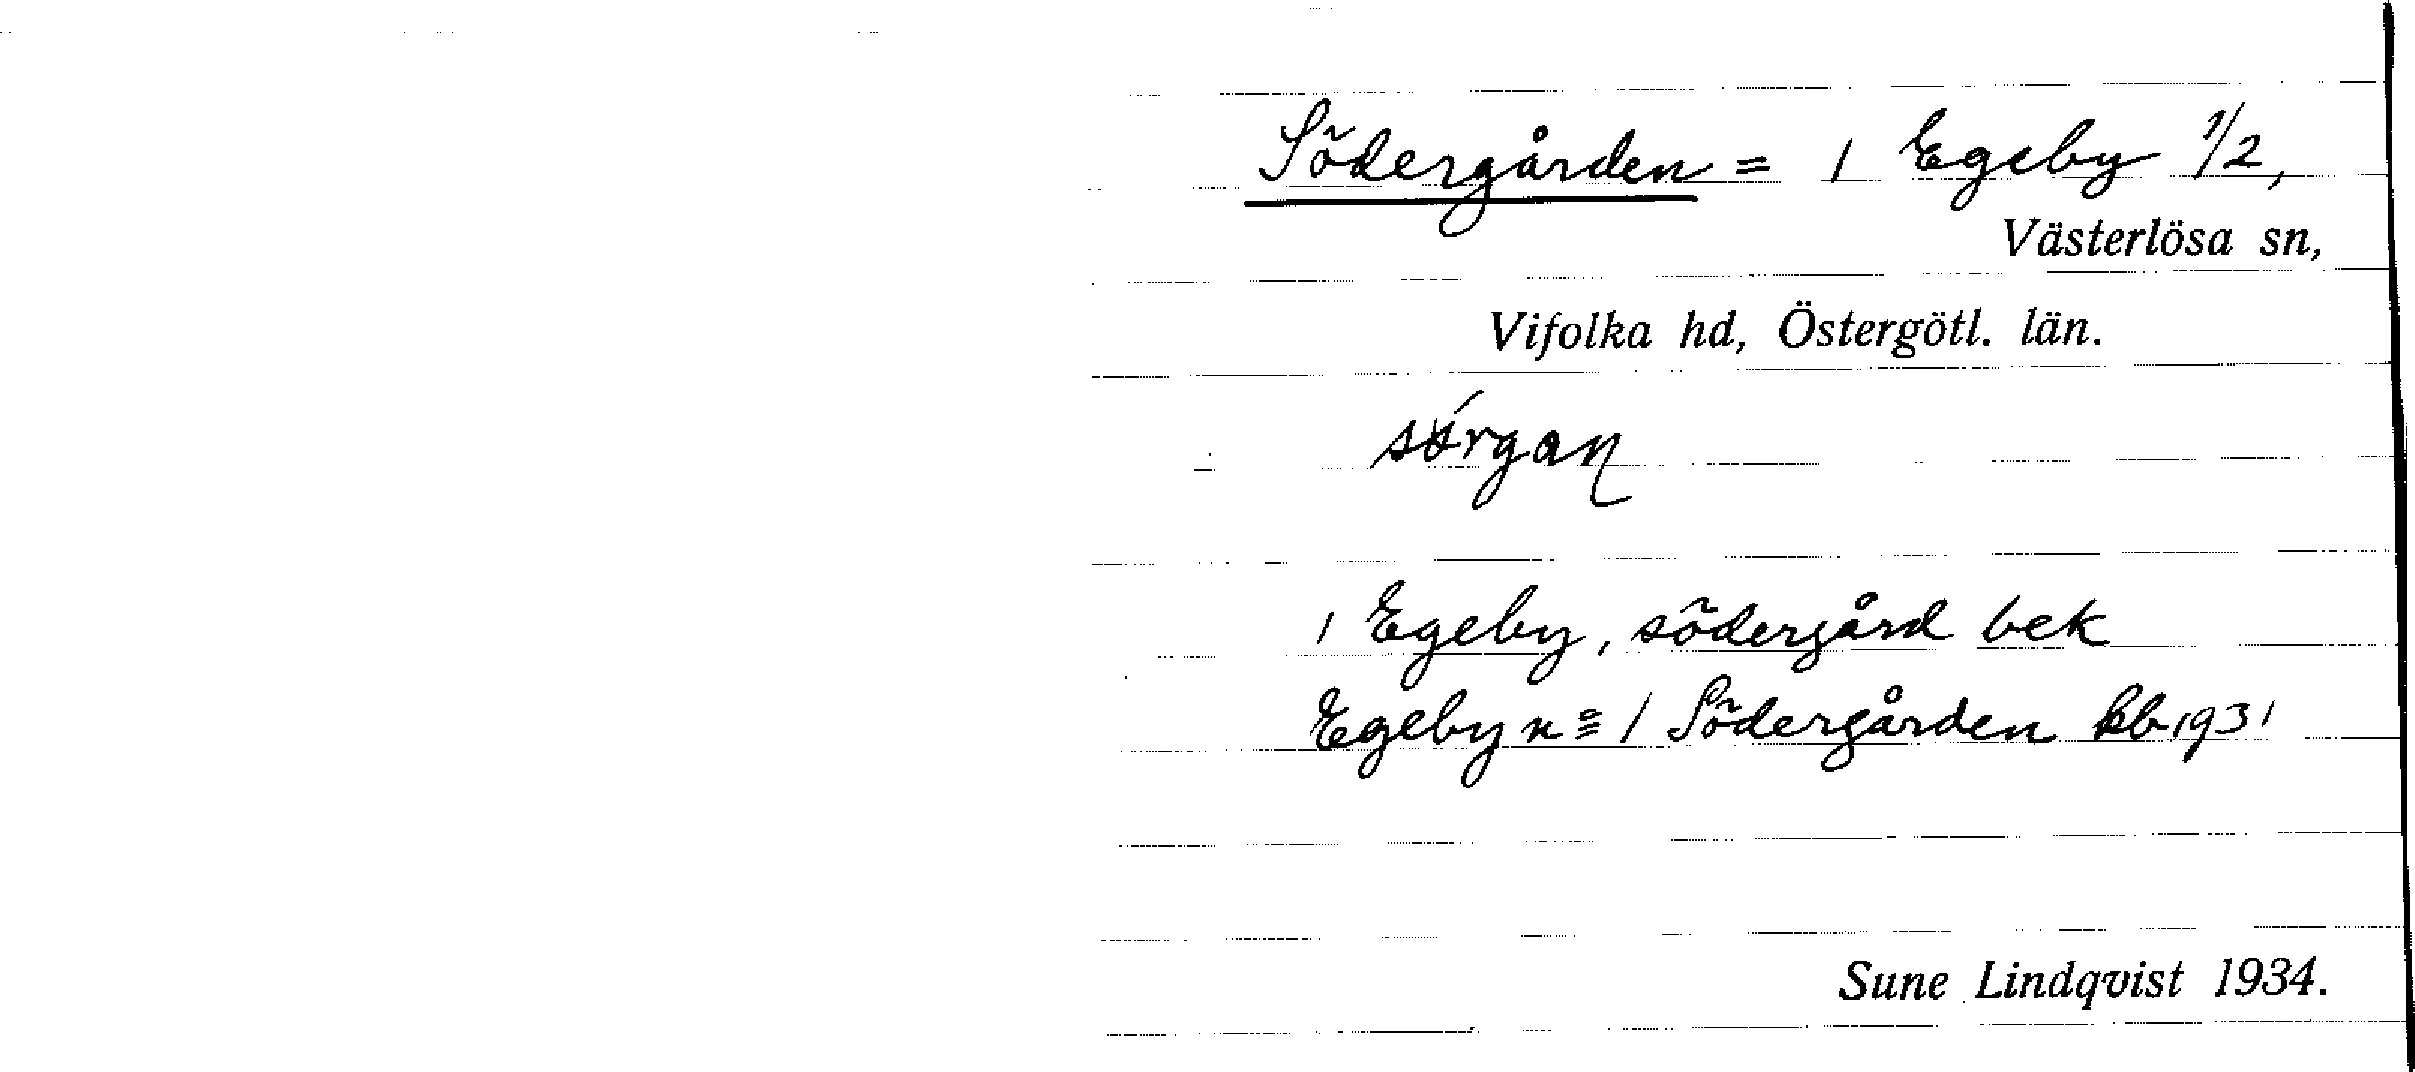 Södergården = 1 Egeby 1/2,
Västerlösa sn,
Vifolka hd, Östergötl. län.
sö́rgaɳ
1 Egeby, södergård bek
Egeby nº 1 Södergården kb 1931
Sune Lindqvist 1934.